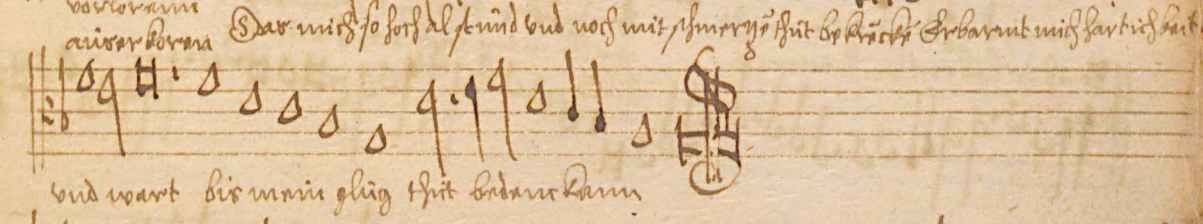 vorlorenn
auserkoren Das mich so hoch al stund und noch mit schmertzē thut bekrēckē Erbarmt mich hart ich
und wart bis mein glug thut bedenckenn